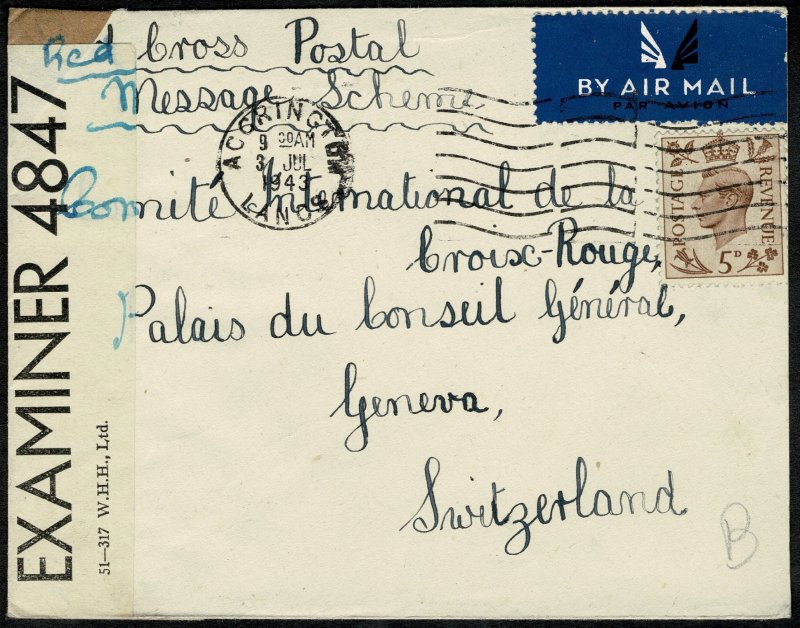 Red Cross Postal
Message Scheme
BY AIR MAIL
PAR AVION
ACCRINGTON
9 30AM
3 JUL
1943
LANCS
POSTAGE REVENUE
5D
Comité International de la
Croix-Rouge,
Palais du Conseil Général,
Geneva,
Switzerland
B
EXAMINER 4847
51—317 W.H.H., Ltd.